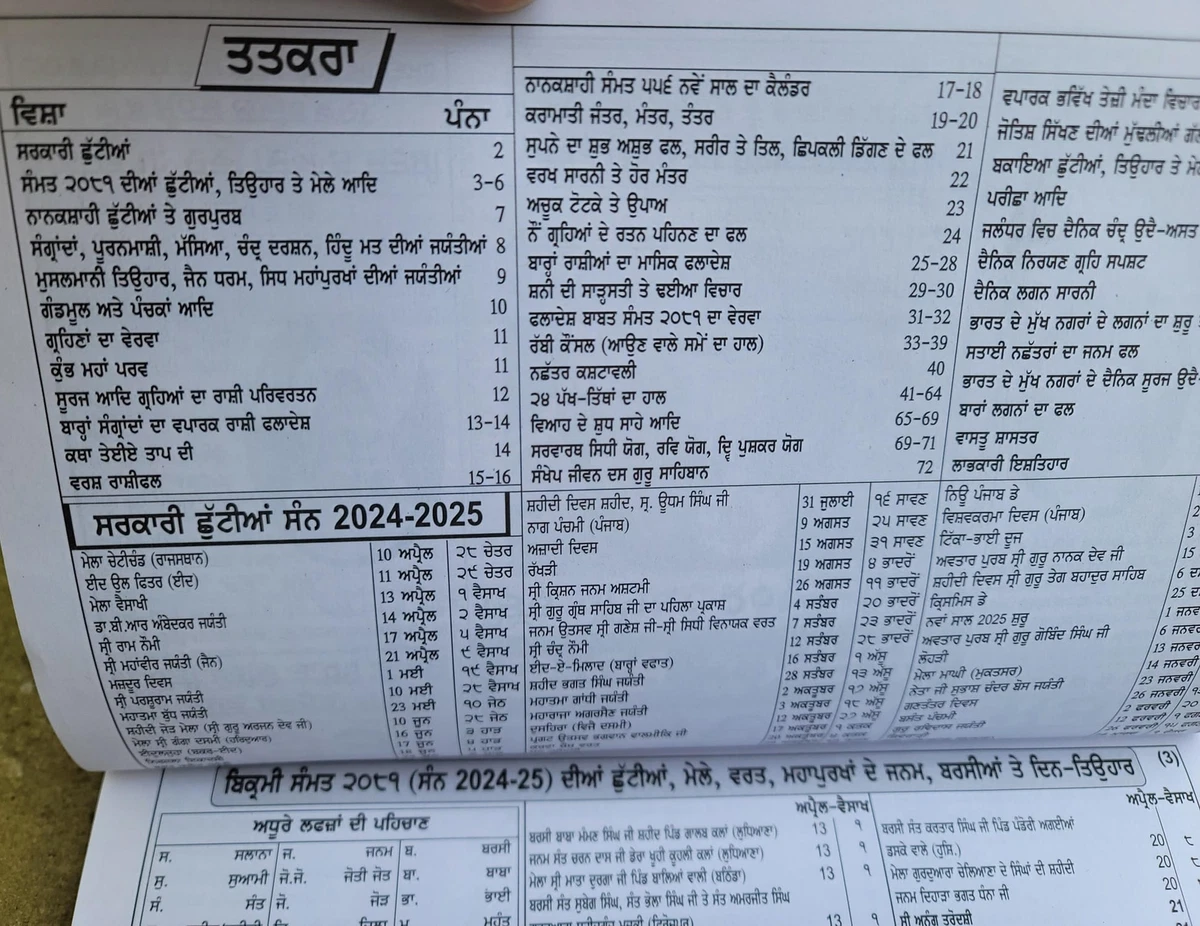 ਤਤਕਰਾ
ਵਿਸ਼ਾ ਪੰਨਾ
ਸਰਕਾਰੀ ਛੁੱਟੀਆਂ 2
ਸੰਮਤ ੨੦੮੧ ਦੀਆਂ ਛੁੱਟੀਆਂ, ਤਿਉਹਾਰ ਤੇ ਮੇਲੇ ਆਦਿ 3-6
ਨਾਨਕਸ਼ਾਹੀ ਛੁੱਟੀਆਂ ਤੇ ਗੁਰਪੁਰਬ 7
ਸੰਗ੍ਰਾਂਦਾਂ, ਪੂਰਨਮਾਸ਼ੀ, ਮੱਸਿਆ, ਚੰਦ੍ਰ ਦਰਸ਼ਨ, ਹਿੰਦੂ ਮਤ ਦੀਆਂ ਜਯੰਤੀਆਂ 8
ਮੁਸਲਮਾਨੀ ਤਿਉਹਾਰ, ਜੈਨ ਧਰਮ, ਸਿਧ ਮਹਾਂਪੁਰਖਾਂ ਦੀਆਂ ਜਯੰਤੀਆਂ 9
ਗੰਡਮੂਲ ਅਤੇ ਪੰਚਕਾਂ ਆਦਿ 10
ਗ੍ਰਹਿਣਾਂ ਦਾ ਵੇਰਵਾ 11
ਕੁੰਭ ਮਹਾਂ ਪਰਵ 11
ਸੂਰਜ ਆਦਿ ਗ੍ਰਹਿਆਂ ਦਾ ਰਾਸ਼ੀ ਪਰਿਵਰਤਨ 12
ਬਾਰ੍ਹਾਂ ਸੰਗ੍ਰਾਂਦਾਂ ਦਾ ਵਪਾਰਕ ਰਾਸ਼ੀ ਫਲਾਦੇਸ਼ 13-14
ਕਥਾ ਤੇਈਏ ਤਾਪ ਦੀ 14
ਵਰਸ਼ ਰਾਸ਼ੀਫਲ 15-16
ਨਾਨਕਸ਼ਾਹੀ ਸੰਮਤ ੫੫੬ ਨਵੇਂ ਸਾਲ ਦਾ ਕੈਲੰਡਰ 17-18
ਕਰਾਮਾਤੀ ਜੰਤਰ, ਮੰਤਰ, ਤੰਤਰ 19-20
ਸੁਪਨੇ ਦਾ ਸ਼ੁਭ ਅਸ਼ੁਭ ਫਲ, ਸਰੀਰ ਤੇ ਤਿਲ, ਛਿਪਕਲੀ ਡਿੱਗਣ ਦੇ ਫਲ 21
ਵਰਖ ਸਾਰਨੀ ਤੇ ਹੋਰ ਮੰਤਰ 22
ਅਚੂਕ ਟੋਟਕੇ ਤੇ ਉਪਾਅ 23
ਨੌਂ ਗ੍ਰਹਿਆਂ ਦੇ ਰਤਨ ਪਹਿਨਣ ਦਾ ਫਲ 24
ਬਾਰ੍ਹਾਂ ਰਾਸ਼ੀਆਂ ਦਾ ਮਾਸਿਕ ਫਲਾਦੇਸ਼ 25-28
ਸ਼ਨੀ ਦੀ ਸਾੜ੍ਹਸਤੀ ਤੇ ਢਈਆ ਵਿਚਾਰ 29-30
ਫਲਾਦੇਸ਼ ਬਾਬਤ ਸੰਮਤ ੨੦੮੧ ਦਾ ਵੇਰਵਾ 31-32
ਰੱਬੀ ਕੌਂਸਲ (ਆਉਣ ਵਾਲੇ ਸਮੇਂ ਦਾ ਹਾਲ) 33-39
ਨਛੱਤਰ ਕਸ਼ਟਾਵਲੀ 40
੨੪ ਪੱਖ-ਤਿੱਥਾਂ ਦਾ ਹਾਲ 41-64
ਵਿਆਹ ਦੇ ਸ਼ੁਧ ਸਾਹੇ ਆਦਿ 65-69
ਸਰਵਾਰਥ ਸਿਧੀ ਯੋਗ, ਰਵਿ ਯੋਗ, ਦ੍ਵਿ ਪੁਸ਼ਕਰ ਯੋਗ 69-71
ਸੰਖੇਪ ਜੀਵਨ ਦਸ ਗੁਰੂ ਸਾਹਿਬਾਨ 72
ਵਪਾਰਕ ਭਵਿੱਖ ਤੇਜ਼ੀ ਮੰਦਾ ਵਿਚਾਰ
ਜੋਤਿਸ਼ ਸਿੱਖਣ ਦੀਆਂ ਮੁੱਢਲੀਆਂ
ਬਕਾਇਆ ਛੁੱਟੀਆਂ, ਤਿਉਹਾਰ ਤੇ
ਪਰੀਛਾ ਆਦਿ
ਜਲੰਧਰ ਵਿਚ ਦੈਨਿਕ ਚੰਦ੍ਰ ਉਦੈ-ਅਸਤ
ਦੈਨਿਕ ਨਿਰਯਣ ਗ੍ਰਹਿ ਸਪਸ਼ਟ
ਦੈਨਿਕ ਲਗਨ ਸਾਰਨੀ
ਭਾਰਤ ਦੇ ਮੁੱਖ ਨਗਰਾਂ ਦੇ ਲਗਨਾਂ ਦਾ ਸ਼ੁਰੂ
ਸਤਾਈ ਨਛੱਤਰਾਂ ਦਾ ਜਨਮ ਫਲ
ਭਾਰਤ ਦੇ ਮੁੱਖ ਨਗਰਾਂ ਦੇ ਦੈਨਿਕ ਸੂਰਜ ਉਦੈ-
ਬਾਰਾਂ ਲਗਨਾਂ ਦਾ ਫਲ
ਵਾਸਤੂ ਸ਼ਾਸਤਰ
ਲਾਭਕਾਰੀ ਇਸ਼ਤਿਹਾਰ
ਸਰਕਾਰੀ ਛੁੱਟੀਆਂ ਸੰਨ 2024-2025
ਮੇਲਾ ਚੇਟੀਚੰਡ (ਰਾਜਸਥਾਨ) 10 ਅਪ੍ਰੈਲ ੨੮ ਚੇਤਰ
ਈਦ ਉਲ ਫਿਤਰ (ਈਦ) 11 ਅਪ੍ਰੈਲ ੨੯ ਚੇਤਰ
ਮੇਲਾ ਵੈਸਾਖੀ 13 ਅਪ੍ਰੈਲ ੧ ਵੈਸਾਖ
ਡਾ.ਬੀ.ਆਰ ਅੰਬੇਦਕਰ ਜਯੰਤੀ 14 ਅਪ੍ਰੈਲ ੨ ਵੈਸਾਖ
ਸ੍ਰੀ ਰਾਮ ਨੌਮੀ 17 ਅਪ੍ਰੈਲ ੫ ਵੈਸਾਖ
ਸ੍ਰੀ ਮਹਾਂਵੀਰ ਜਯੰਤੀ (ਜੈਨ) 21 ਅਪ੍ਰੈਲ ੯ ਵੈਸਾਖ
ਮਜ਼ਦੂਰ ਦਿਵਸ 1 ਮਈ ੧੯ ਵੈਸਾਖ
ਸ੍ਰੀ ਪਰਸ਼ੂਰਾਮ ਜਯੰਤੀ 10 ਮਈ ੨੮ ਵੈਸਾਖ
ਮਹਾਤਮਾ ਬੁੱਧ ਜਯੰਤੀ 23 ਮਈ ੧੦ ਜੇਠ
ਸ਼ਹੀਦੀ ਜੋੜ ਮੇਲਾ (ਸ੍ਰੀ ਗੁਰੂ ਅਰਜਨ ਦੇਵ ਜੀ) 10 ਜੂਨ ੨੮ ਜੇਠ
ਮੇਲਾ ਸ੍ਰੀ ਗੰਗਾ ਦਸਮੀ (ਹਰਿਦੁਆਰ) 16 ਜੂਨ ੩ ਹਾੜ
17 ਜੂਨ ੪ ਹਾੜ
ਸ਼ਹੀਦੀ ਦਿਵਸ ਸ਼ਹੀਦ, ਸ੍ਰ. ਊਧਮ ਸਿੰਘ ਜੀ 31 ਜੁਲਾਈ ੧੬ ਸਾਵਣ
ਨਾਗ ਪੰਚਮੀ (ਪੰਜਾਬ) 9 ਅਗਸਤ ੨੫ ਸਾਵਣ
ਅਜ਼ਾਦੀ ਦਿਵਸ 15 ਅਗਸਤ ੩੧ ਸਾਵਣ
ਰੱਖੜੀ 19 ਅਗਸਤ ੪ ਭਾਦਰੋਂ
ਸ੍ਰੀ ਕ੍ਰਿਸ਼ਨ ਜਨਮ ਅਸ਼ਟਮੀ 26 ਅਗਸਤ ੧੧ ਭਾਦਰੋਂ
ਸ੍ਰੀ ਗੁਰੂ ਗ੍ਰੰਥ ਸਾਹਿਬ ਜੀ ਦਾ ਪਹਿਲਾ ਪ੍ਰਕਾਸ਼ 4 ਸਤੰਬਰ ੨੦ ਭਾਦਰੋਂ
ਜਨਮ ਉਤਸਵ ਸ੍ਰੀ ਗਣੇਸ਼ ਜੀ-ਸ੍ਰੀ ਸਿਧੀ ਵਿਨਾਯਕ ਵਰਤ 7 ਸਤੰਬਰ ੨੩ ਭਾਦਰੋਂ
ਸ੍ਰੀ ਚੰਦ੍ਰ ਨੌਮੀ 12 ਸਤੰਬਰ ੨੮ ਭਾਦਰੋਂ
ਈਦ-ਏ-ਮਿਲਾਦ (ਬਾਰ੍ਹਾਂ ਵਫਾਤ) 16 ਸਤੰਬਰ ੧ ਅੱਸੂ
ਸ਼ਹੀਦ ਭਗਤ ਸਿੰਘ ਜਯੰਤੀ 28 ਸਤੰਬਰ ੧੩ ਅੱਸੂ
ਮਹਾਤਮਾ ਗਾਂਧੀ ਜਯੰਤੀ 2 ਅਕਤੂਬਰ ੧੭ ਅੱਸੂ
ਮਹਾਰਾਜਾ ਅਗਰਸੈਣ ਜਯੰਤੀ 3 ਅਕਤੂਬਰ ੧੮ ਅੱਸੂ
ਦੁਸਹਿਰਾ (ਵਿਜੈ ਦਸਮੀ) 12 ਅਕਤੂਬਰ ੨੭ ਅੱਸੂ
ਪ੍ਰਗਟ ਉਤਸਵ ਭਗਵਾਨ ਵਾਲਮੀਕਿ ਜੀ
ਨਿਊ ਪੰਜਾਬ ਡੇ
ਵਿਸ਼ਵਕਰਮਾ ਦਿਵਸ (ਪੰਜਾਬ) 2
ਟਿੱਕਾ-ਭਾਈ ਦੂਜ 3
ਅਵਤਾਰ ਪੁਰਬ ਸ੍ਰੀ ਗੁਰੂ ਨਾਨਕ ਦੇਵ ਜੀ 15
ਸ਼ਹੀਦੀ ਦਿਵਸ ਸ੍ਰੀ ਗੁਰੂ ਤੇਗ ਬਹਾਦੁਰ ਸਾਹਿਬ 6
ਕ੍ਰਿਸਮਿਸ ਡੇ 25
ਨਵਾਂ ਸਾਲ 2025 ਸ਼ੁਰੂ 1
ਅਵਤਾਰ ਪੁਰਬ ਸ੍ਰੀ ਗੁਰੂ ਗੋਬਿੰਦ ਸਿੰਘ ਜੀ 6 ਜਨਵਰੀ
ਲੋਹੜੀ 13 ਜਨਵਰੀ
ਮੇਲਾ ਮਾਘੀ (ਮੁਕਤਸਰ) 14 ਜਨਵਰੀ
ਨੇਤਾ ਜੀ ਸੁਭਾਸ਼ ਚੰਦਰ ਬੋਸ ਜਯੰਤੀ 23 ਜਨਵਰੀ
ਗਣਤੰਤਰ ਦਿਵਸ 26 ਜਨਵਰੀ
ਬਸੰਤ ਪੰਚਮੀ 2 ਫਰਵਰੀ
ਗੁਰੂ ਰਵਿਦਾਸ ਜਯੰਤੀ 12 ਫਰਵਰੀ
ਬਿਕ੍ਰਮੀ ਸੰਮਤ ੨੦੮੧ (ਸੰਨ 2024-25) ਦੀਆਂ ਛੁੱਟੀਆਂ, ਮੇਲੇ, ਵਰਤ, ਮਹਾਪੁਰਖਾਂ ਦੇ ਜਨਮ, ਬਰਸੀਆਂ ਤੇ ਦਿਨ-ਤਿਉਹਾਰ (3)
ਅਧੂਰੇ ਲਫਜ਼ਾਂ ਦੀ ਪਹਿਚਾਣ
ਸ. ਸਲਾਨਾ ਜ. ਜਨਮ ਬ. ਬਰਸੀ
ਸੁ. ਸੁਆਮੀ ਜੋ.ਜੋ. ਜੋਤੀ ਜੋਤ ਬਾ. ਬਾਬਾ
ਸੰ. ਸੰਤ ਜੋ. ਜੋੜ ਭਾ. ਭਾਈ
ਮ. ਮਹੰਤ
ਅਪ੍ਰੈਲ-ਵੈਸਾਖ
ਬਰਸੀ ਬਾਬਾ ਮੰਮਣ ਸਿੰਘ ਜੀ ਸ਼ਹੀਦ ਪਿੰਡ ਗਾਲਬ ਕਲਾਂ (ਲੁਧਿਆਣਾ) 13 ੧
ਜਨਮ ਸੰਤ ਚਰਨ ਦਾਸ ਜੀ ਡੇਰਾ ਖੂਹੀ ਕੂਹਲੀ ਕਲਾਂ (ਲੁਧਿਆਣਾ) 13 ੧
ਮੇਲਾ ਸ੍ਰੀ ਮਾਤਾ ਦੁਰਗਾ ਜੀ ਪਿੰਡ ਬਾਲਿਆਂ ਵਾਲੀ (ਬਠਿੰਡਾ) 13 ੧
ਬਰਸੀ ਸੰਤ ਸੁਬੇਗ ਸਿੰਘ, ਸੰਤ ਭੋਲਾ ਸਿੰਘ ਜੀ ਤੇ ਸੰਤ ਅਮਰਜੀਤ ਸਿੰਘ
13 ੧
ਅਪ੍ਰੈਲ-ਵੈਸਾਖ
ਬਰਸੀ ਸੰਤ ਕਰਤਾਰ ਸਿੰਘ ਜੀ ਪਿੰਡ ਪੰਡੋਰੀ ਅਰਾਈਆਂ
ਡਸਕੇ ਵਾਲੇ (ਹੁਸ਼ਿ.) 20 ੮
ਮੇਲਾ ਗੁਰਦੁਆਰਾ ਚੇਲਿਆਣਾ ਦੇ ਸਿੰਘਾਂ ਦੀ ਸ਼ਹੀਦੀ 20 ੮
ਜਨਮ ਦਿਹਾੜਾ ਭਗਤ ਧੰਨਾ ਜੀ 20
ਸ੍ਰੀ ਅਨੰਗ ਤਰੋਦਸ਼ੀ 21